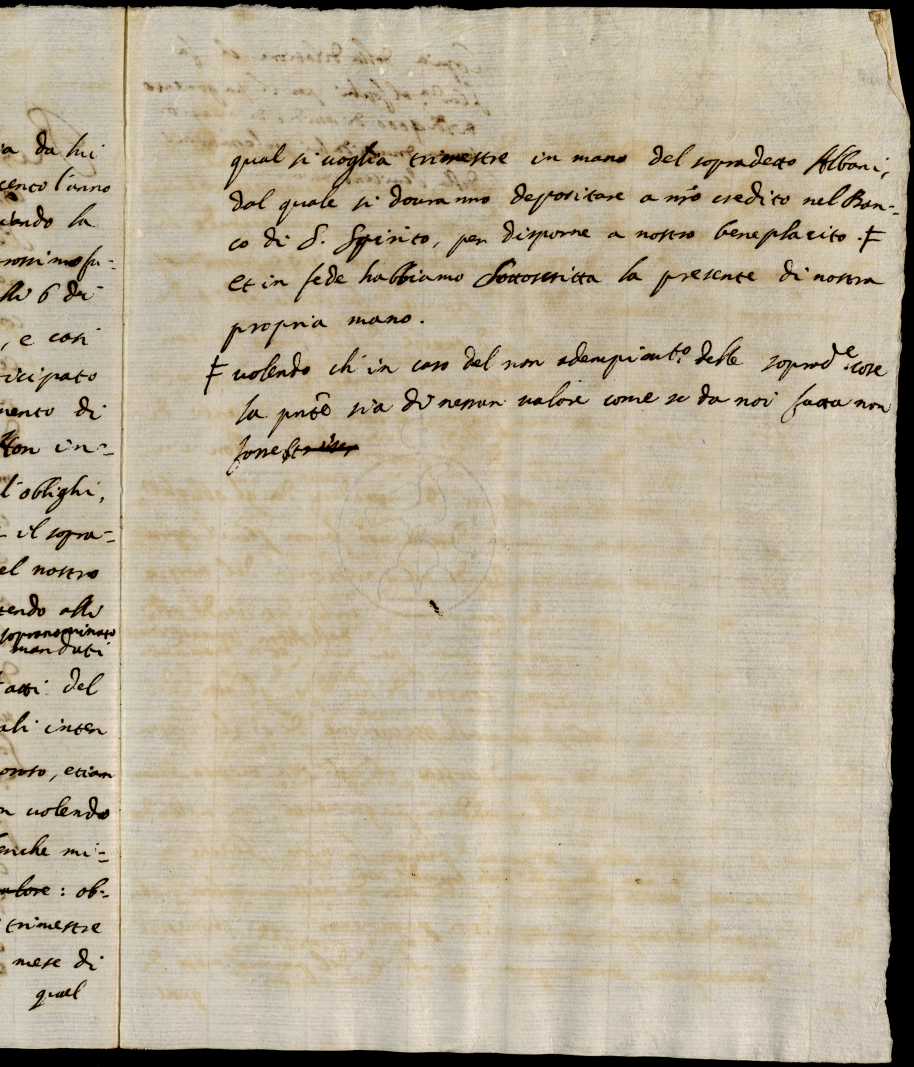 a da lui
cento l'anno
uando la
rossimo fu-
lli 6 di
, e così
ticipato
mento di
Non in-
l'oblighi,
il sopra-
el nostro
tendo alli
sopranominato
mandati
atti del
ali inten
onto, etiam
n uolendo
enche mi-
alore: ob-
trimestre
mese di
qual
qual si uoglia trimestre in mano del sopradetto Albani,
dal quale si douranno depositare a nr̃o credito nel Ban-
co di S. Spirito, per disporne a nostro beneplacito. ‡
et in fede habbiamo sottoscritta la presente di nostra
propria mano.
‡ uolendo ch in caso del non adempimt.º delle soprad.e cose
la pnt̃e sia di nessun ualore come se da noi fatta non
fosse